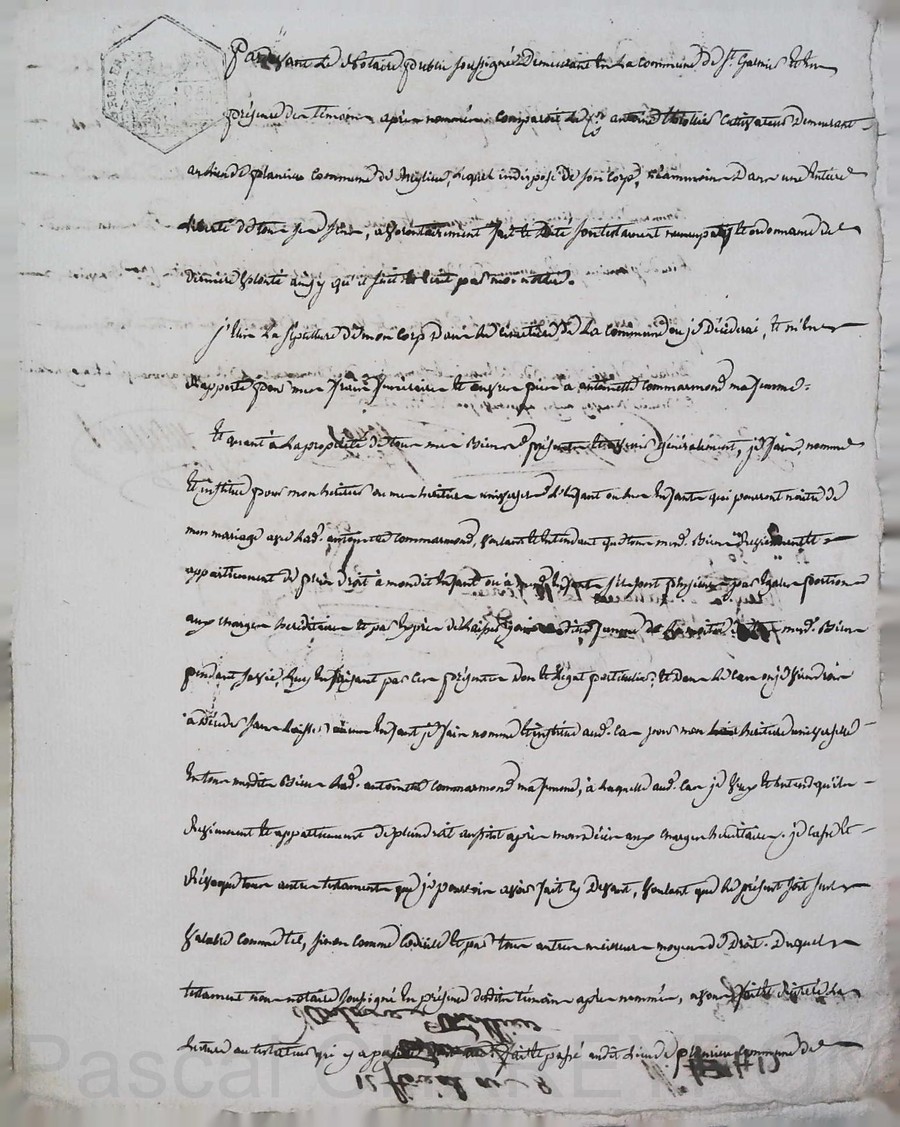 Pardevant le Notaire public soussigné Demeurant En la commune de St. Garmier Et En
présence des témoins après nommés comparoit le Cn antoine thollier Cultivateur Demeurant
au lieu de planieu commune de Neylieu, lequel indisposé de son corp, néammoins Dans une Entiere
liberté de tous ses sens, a volontairement fait et dicté son testament nuncupatif et ordonnance de
derniere volonté ainsy qu'il suit et Ecrit par moi notaire.
j'Elire la sepulture de mon corp Dans le cimetiere de la commune ou je Décéderai, Et m'En
rapporte pour mes frais funeraires Et œuvres pies à antoinette Commarmond ma femme.
Et quant à la propriété de tous mes Biens présents et avenir généralement, je fais, nomme
Et institue pour mon heritier ou mes heritiers universels l'Enfant ou les Enfants qui pourront naître de
mon mariage avec lad. antoinette Commarmond, voulant Et Entendant que tous mesd. Biens
appartiennent de plein Droit à mondit Enfant ou à mesd. Enfants s'ils sont plusieurs par Egales portions
aux charges hereditaires Et par Exprès de laisser jouir madite femme de la moitié mesd. Biens
pendant sa vie, luy En faisant par ces présentes Don et Legat particulier, Et Dans le cas ou je viendrois
à Décéder sans laisser aucun Enfant je fais nomme Et institue aud. Cas pour mon heritiere universelle
En tous mesdits Biens lad. antoinette Commarmond ma femme, à laquelle aud. Cas je veux Et Entend qu'ils
reviennent Et appartiennent de plein droit aussitot après mon décès aux charges hereditaires. je casse Et
Révoque tous autres testaments que je pourrois avoir fait Cy Devant, voulant que le présent soit seul
valable comme tel, sinon comme Codicille Et par tous autres meilleurs moyens de Droit. Duquel
testament nous notaire soussigné En présence desdits témoins après nommés, avons fait Et réitéré la
lecture au testateur qui y a persisté fait Et passé audit lieu de planieu Commune de